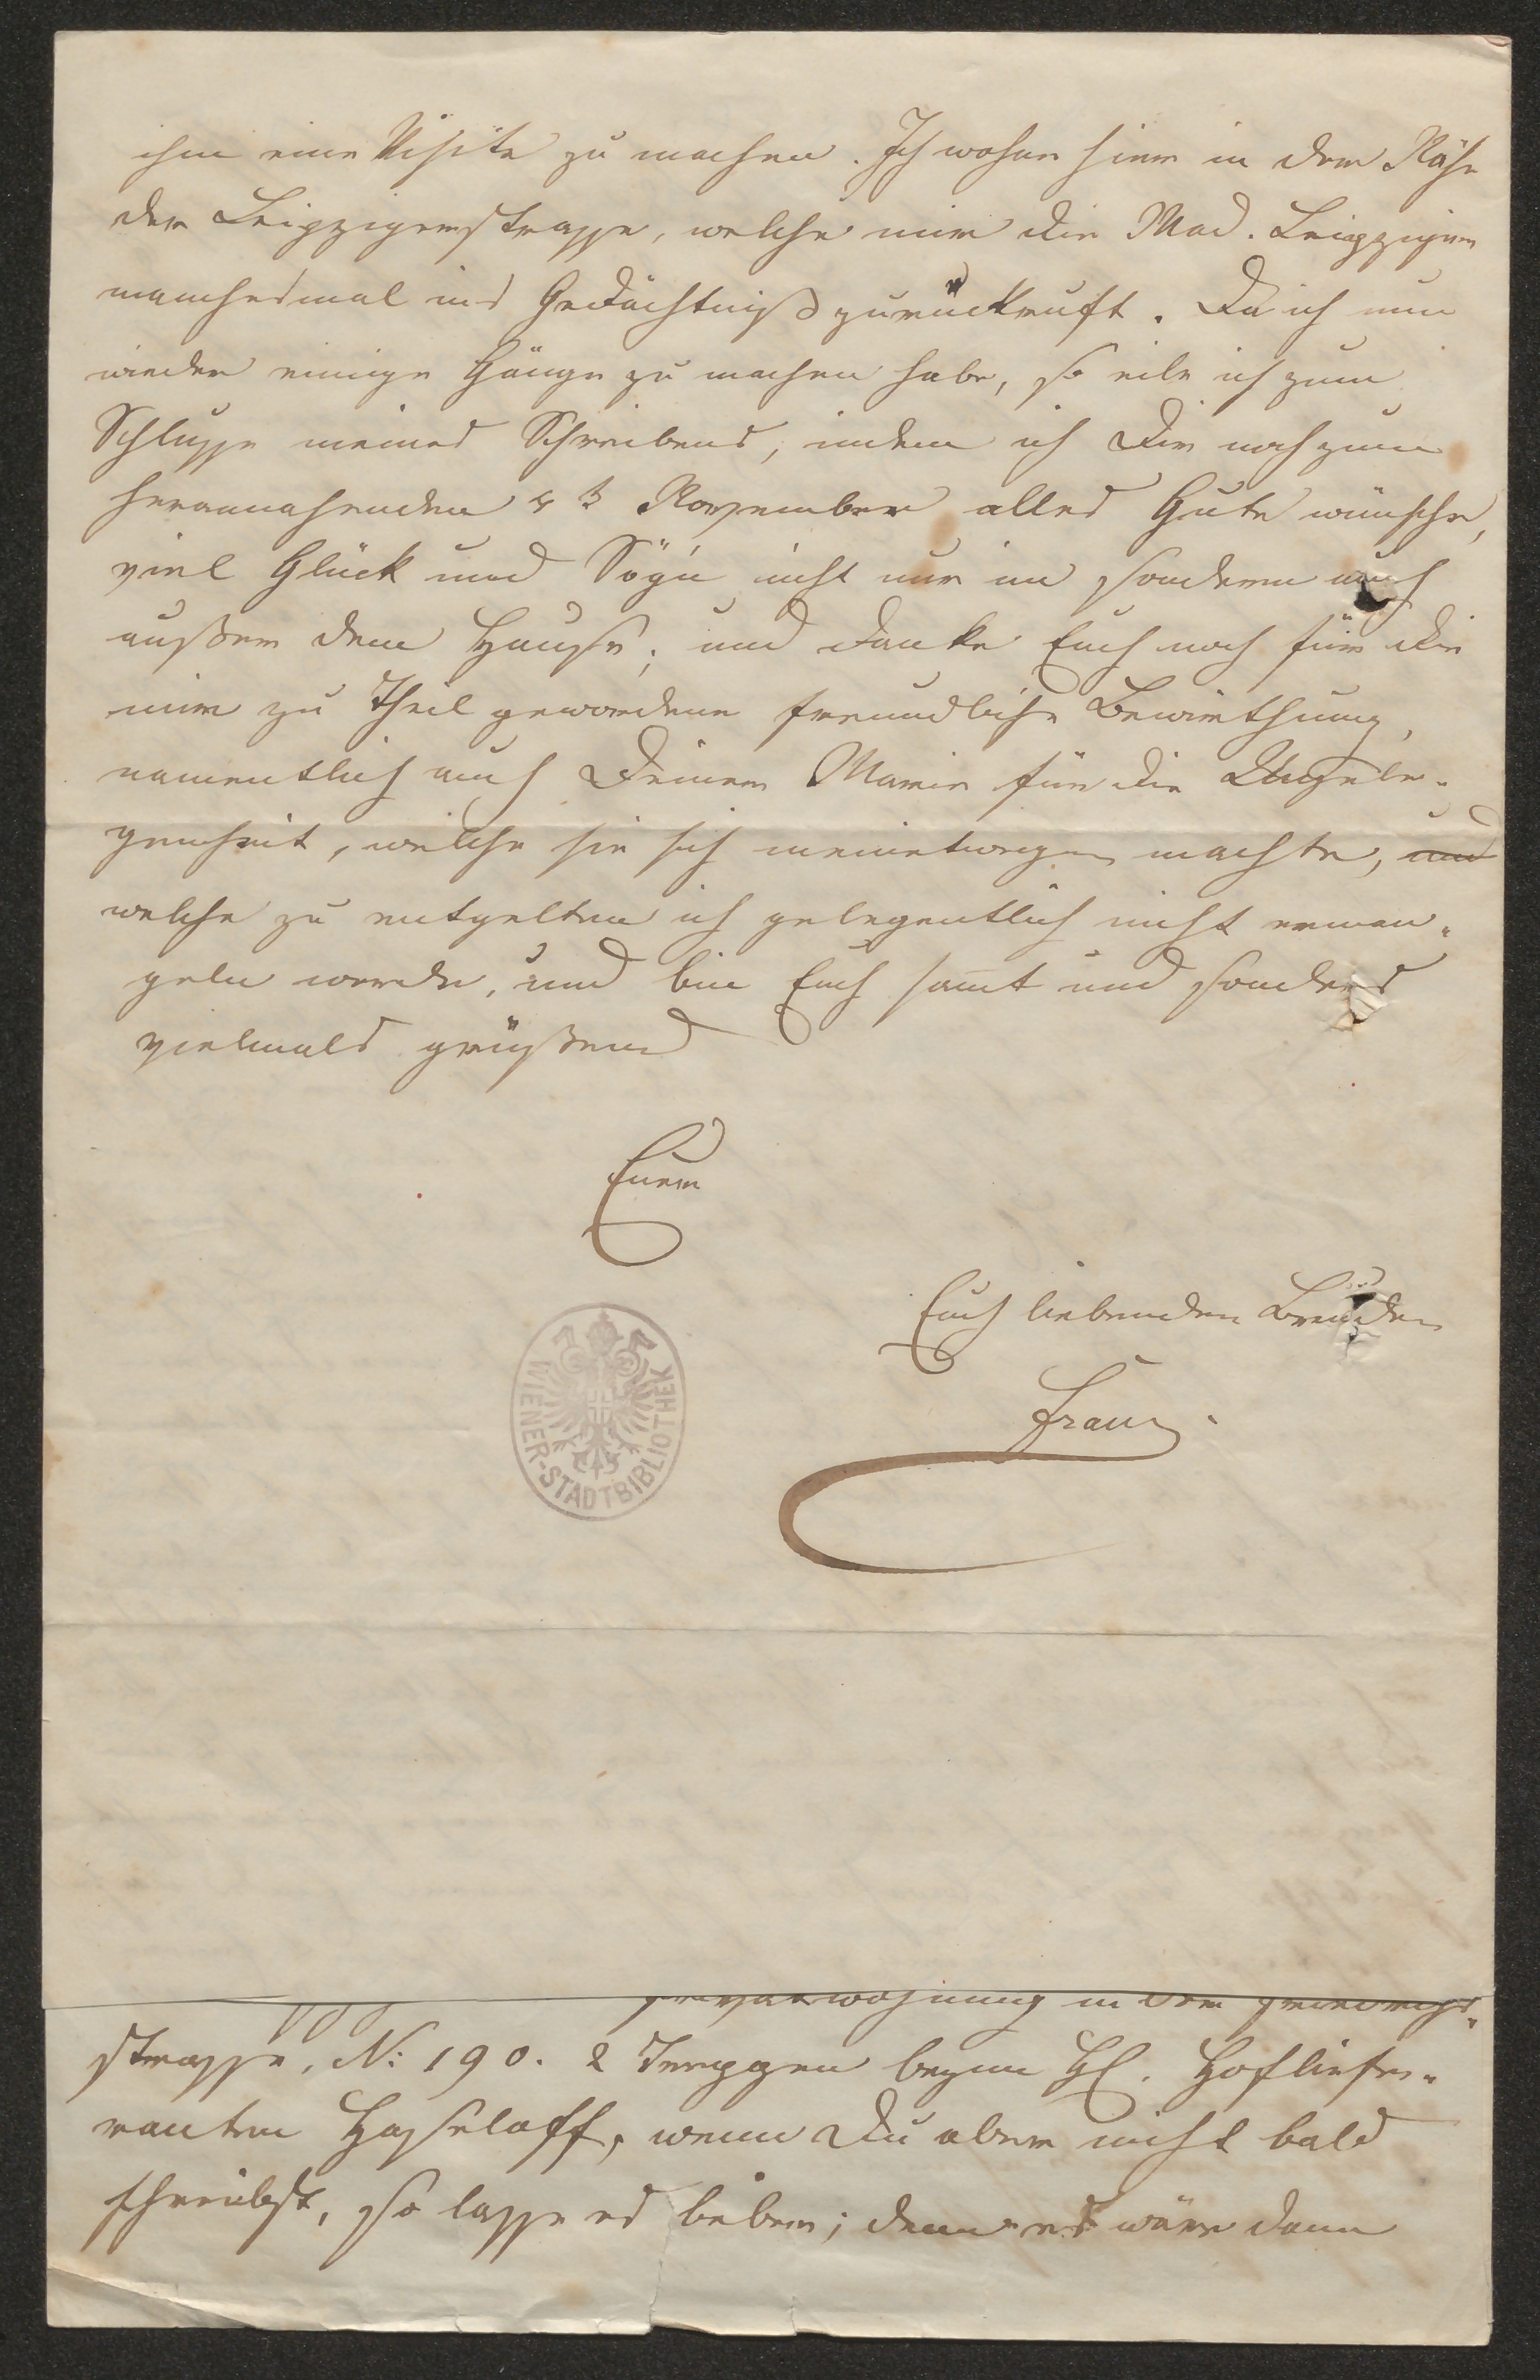 ihm eine Visite zu machen. Ich wohne hier in der Nähe
der Leipzigerstrasse, welche mir die Mad. Leipziger
manchesmal ins Gedächtniß zurückruft. Da ich nun
wieder einige Gänge zu machen habe, so eile ich zum
Schlusse meines Schreibens, indem ich Dir noch zum
herannahenden 4t November alles Gute wünsche,
viel Glück und nicht nur im sondern auch
außer dem Hause; und danke Euch noch für die
mir zu Theil gewordene freundliche Bewirthung,
namentlich auch Deiner Marie für die Ungele-
genheit, welche sie sich meinetwegen machte, und
welche zu entgelten ich gelegentlich nicht erman-
geln werde, und bin Euch samt und sonders
vielmals grüßend
Euer
Euch liebender Bruder
Franz.
WIENER-STADTBIBLIOTHEK
Privatwohnung in der Friedrichs-
strasse, N: 190. 2 Treppen beym H. Hofliefe-
ranten Haseloff, wenn Du aber nicht bald
schreibst, so lasse es lieber; denn es wäre dann